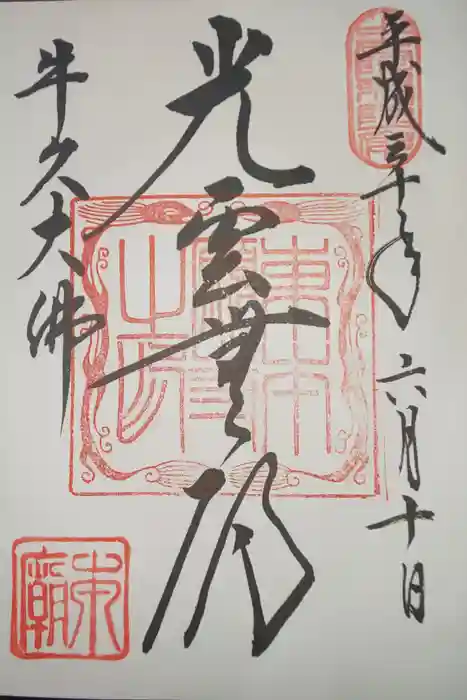 平成三十年六月十日
光雲無碍
牛久大佛
東本
願寺
之印
本廟